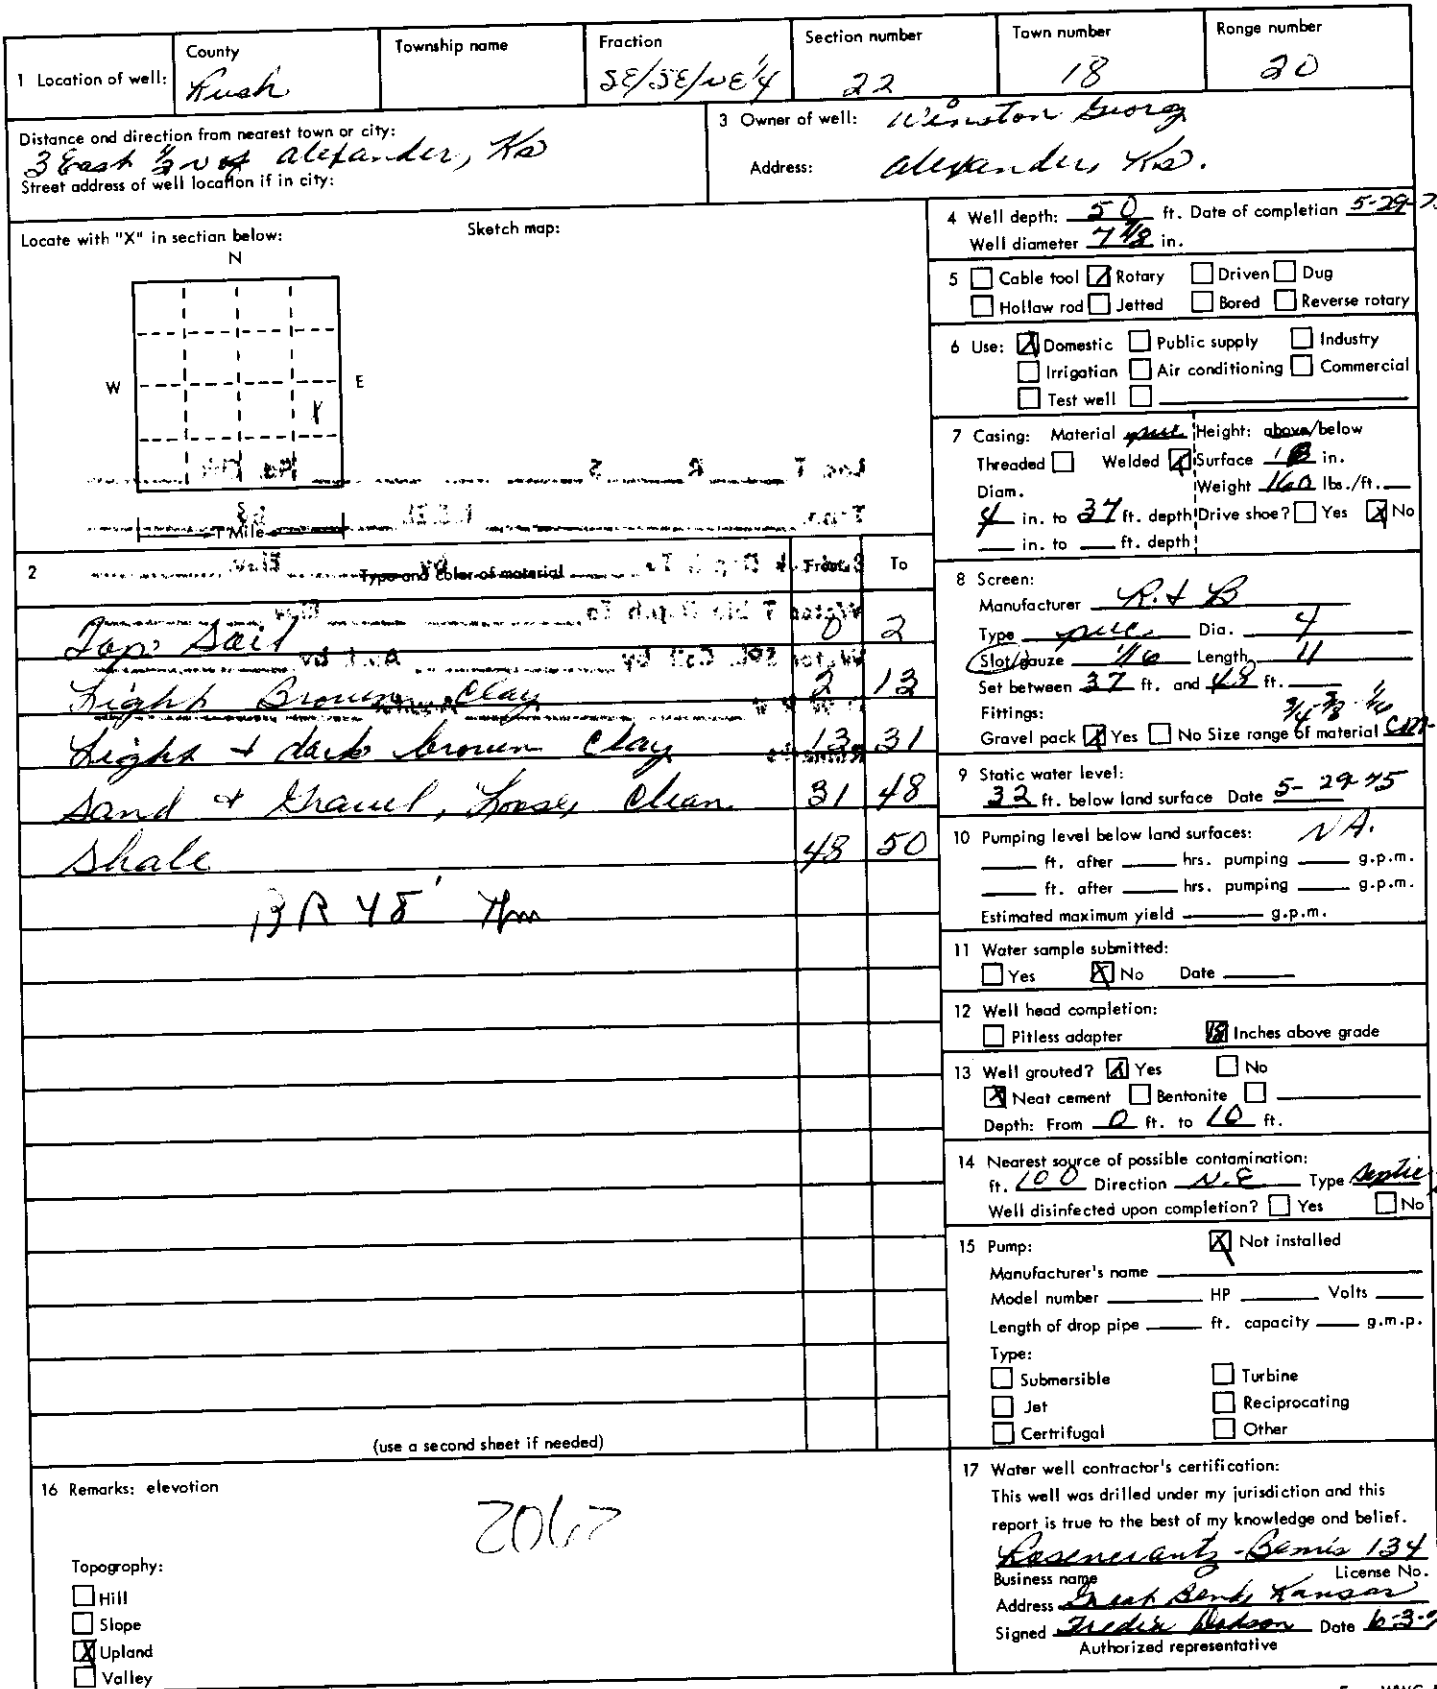 1 Location of well:
County
Rush
Township name
Fraction
SE/SE/NE 1/4
Section number
22
Town number
18
Range number
20
Distance and direction from nearest town or city:
3 East 1/2 N of Alexander, Ks
Street address of well location if in city:
3 Owner of well: Winston Georg
Address: Alexander, Ks.
Locate with "X" in section below:
Sketch map:
N
W
E
X
S
1 Mile
4 Well depth: 50 ft. Date of completion 5-29-7
Well diameter 7 7/8 in.
5 Cable tool Rotary Driven Dug
Hollow rod Jetted Bored Reverse rotary
6 Use: Domestic Public supply Industry
Irrigation Air conditioning Commercial
Test well
7 Casing: Material pvc Height: above/below
Threaded Welded Surface 18 in.
Diam. Weight 160 lbs./ft.
4 in. to 37 ft. depth Drive shoe? Yes No
in. to ft. depth
2 Type and color of material From To
Top Soil 0 2
Light Brown Clay 2 13
Light + dark brown Clay 13 31
Sand + Gravel, Loose, Clean 31 48
Shale 48 50
BR 48'
(use a second sheet if needed)
8 Screen:
Manufacturer R + B
Type pvc Dia. 4
Slot/gauze 1/16 Length 11
Set between 37 ft. and 48 ft.
Fittings: 3/4-3/8-1/16
Gravel pack Yes No Size range of material CM-
9 Static water level:
32 ft. below land surface Date 5-29-75
10 Pumping level below land surfaces: NA.
ft. after hrs. pumping g.p.m.
ft. after hrs. pumping g.p.m.
Estimated maximum yield g.p.m.
11 Water sample submitted:
Yes No Date
12 Well head completion:
Pitless adapter 18 Inches above grade
13 Well grouted? Yes No
Neat cement Bentonite
Depth: From 0 ft. to 10 ft.
14 Nearest source of possible contamination:
ft. 100 Direction N.E Type Septic
Well disinfected upon completion? Yes No
15 Pump: Not installed
Manufacturer's name
Model number HP Volts
Length of drop pipe ft. capacity g.m.p.
Type:
Submersible Turbine
Jet Reciprocating
Certrifugal Other
16 Remarks: elevation
206
Topography:
Hill
Slope
Upland
Valley
17 Water well contractor's certification:
This well was drilled under my jurisdiction and this
report is true to the best of my knowledge and belief.
Rosencrantz-Bemis 134
Business name License No.
Address Great Bend, Kansas
Signed Dodson Date 6-3-7
Authorized representative